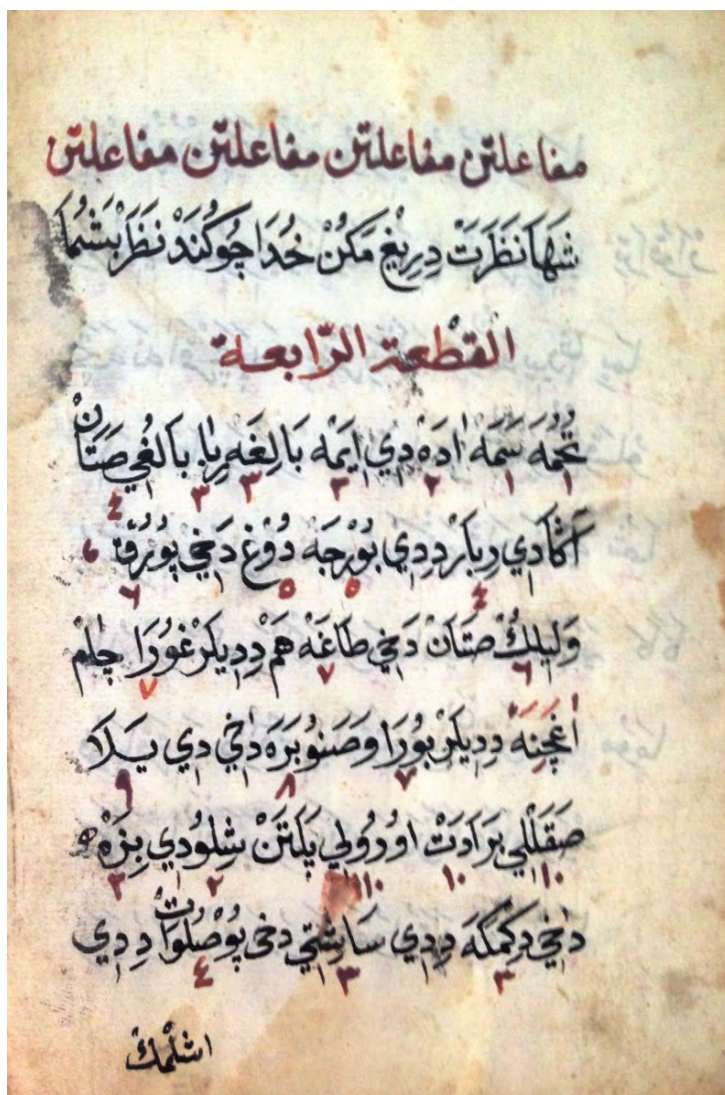 مفاعلتن مفاعلتن مفاعلتن مفاعلتن
شَهَا نَظَرَتْ دِرِيْغْ مَكُنْ خُدَا چُو كُنَدْ نَظَرْ بَشُمَا
القطعة الرّابعة
تُخْمَه سَمَه اٰدَهْ دِي اِيَمَه بَالِغَه رِبا بَالِغِي صَتَانْ
١ ١ ٢ ٣ ٣ ٣ ٤
دِي رِبَارْ دِدِي بُوْرجَه دُوْغ دَخِي پُورُقْ
٤ ٥ ٥ ٦ ٦
وَلِيلِكْ صَتَانْ دَخِي طَاغَه هَمْ دِدِيلَرْ غُورَا چلم
٦ ٧ ٧
اَغْچَنَهْ دِدِيلَرْ بُورَا وَصَنَوُبَرَه دَاخِي دِي يَلَا
٧ ٨ ٩
صَقَلْلِي بَرَادَتْ اوُرُولِي پَلْتَنْ شِلوُدِي بِزَهْ
١٠ ١٠ ١٠ ١ ٢ ٣
دَاخِي دِكمَكَه دِدِي سَايِشتِي دخى پُوصُلوُاتْ دِدِي
٣ ٣ ٤
اشلمك